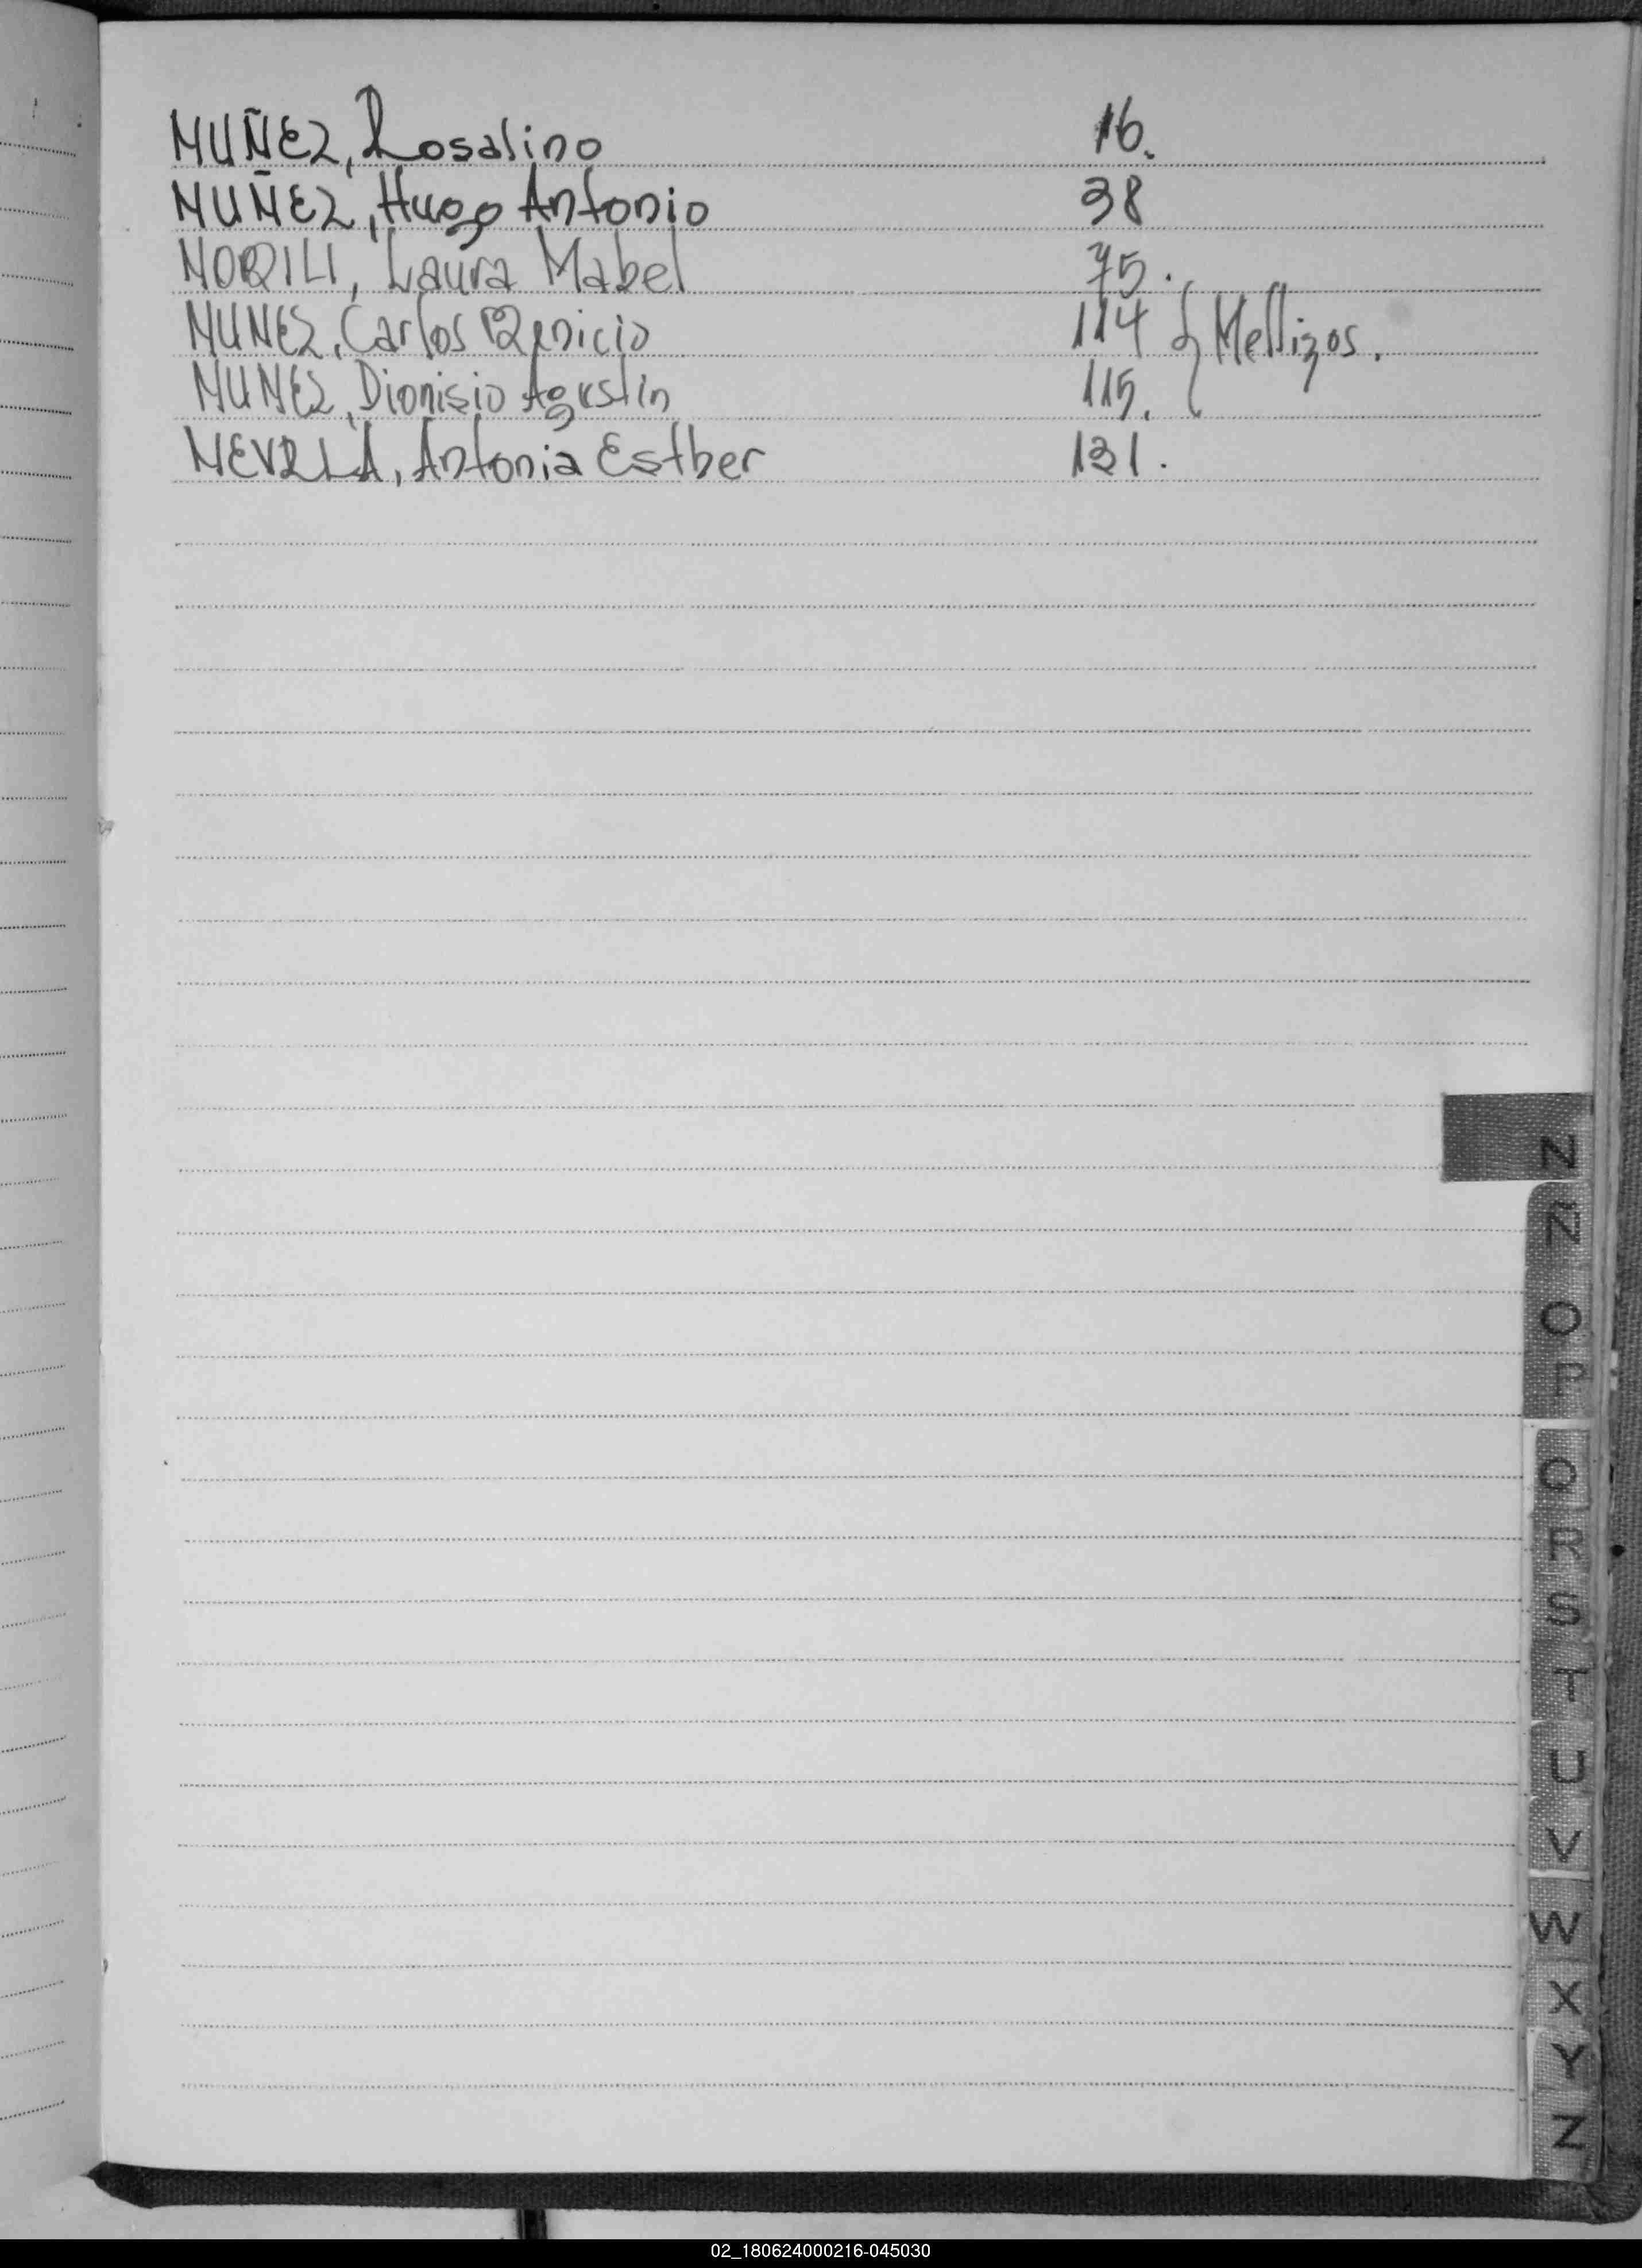 NUÑEZ, Rosalino 16.
NUÑEZ, Hugo Antonio 38
NORILI, Laura Mabel 75.
NUNEZ, Carlos 114 { Mellizos.
NUNEZ, Dionisio Agustin 115.
NEVRLA, Antonia Esther 131.
N
Ñ
O
P
Q
R
S
T
U
V
W
X
Y
Z
02_180624000216-045030